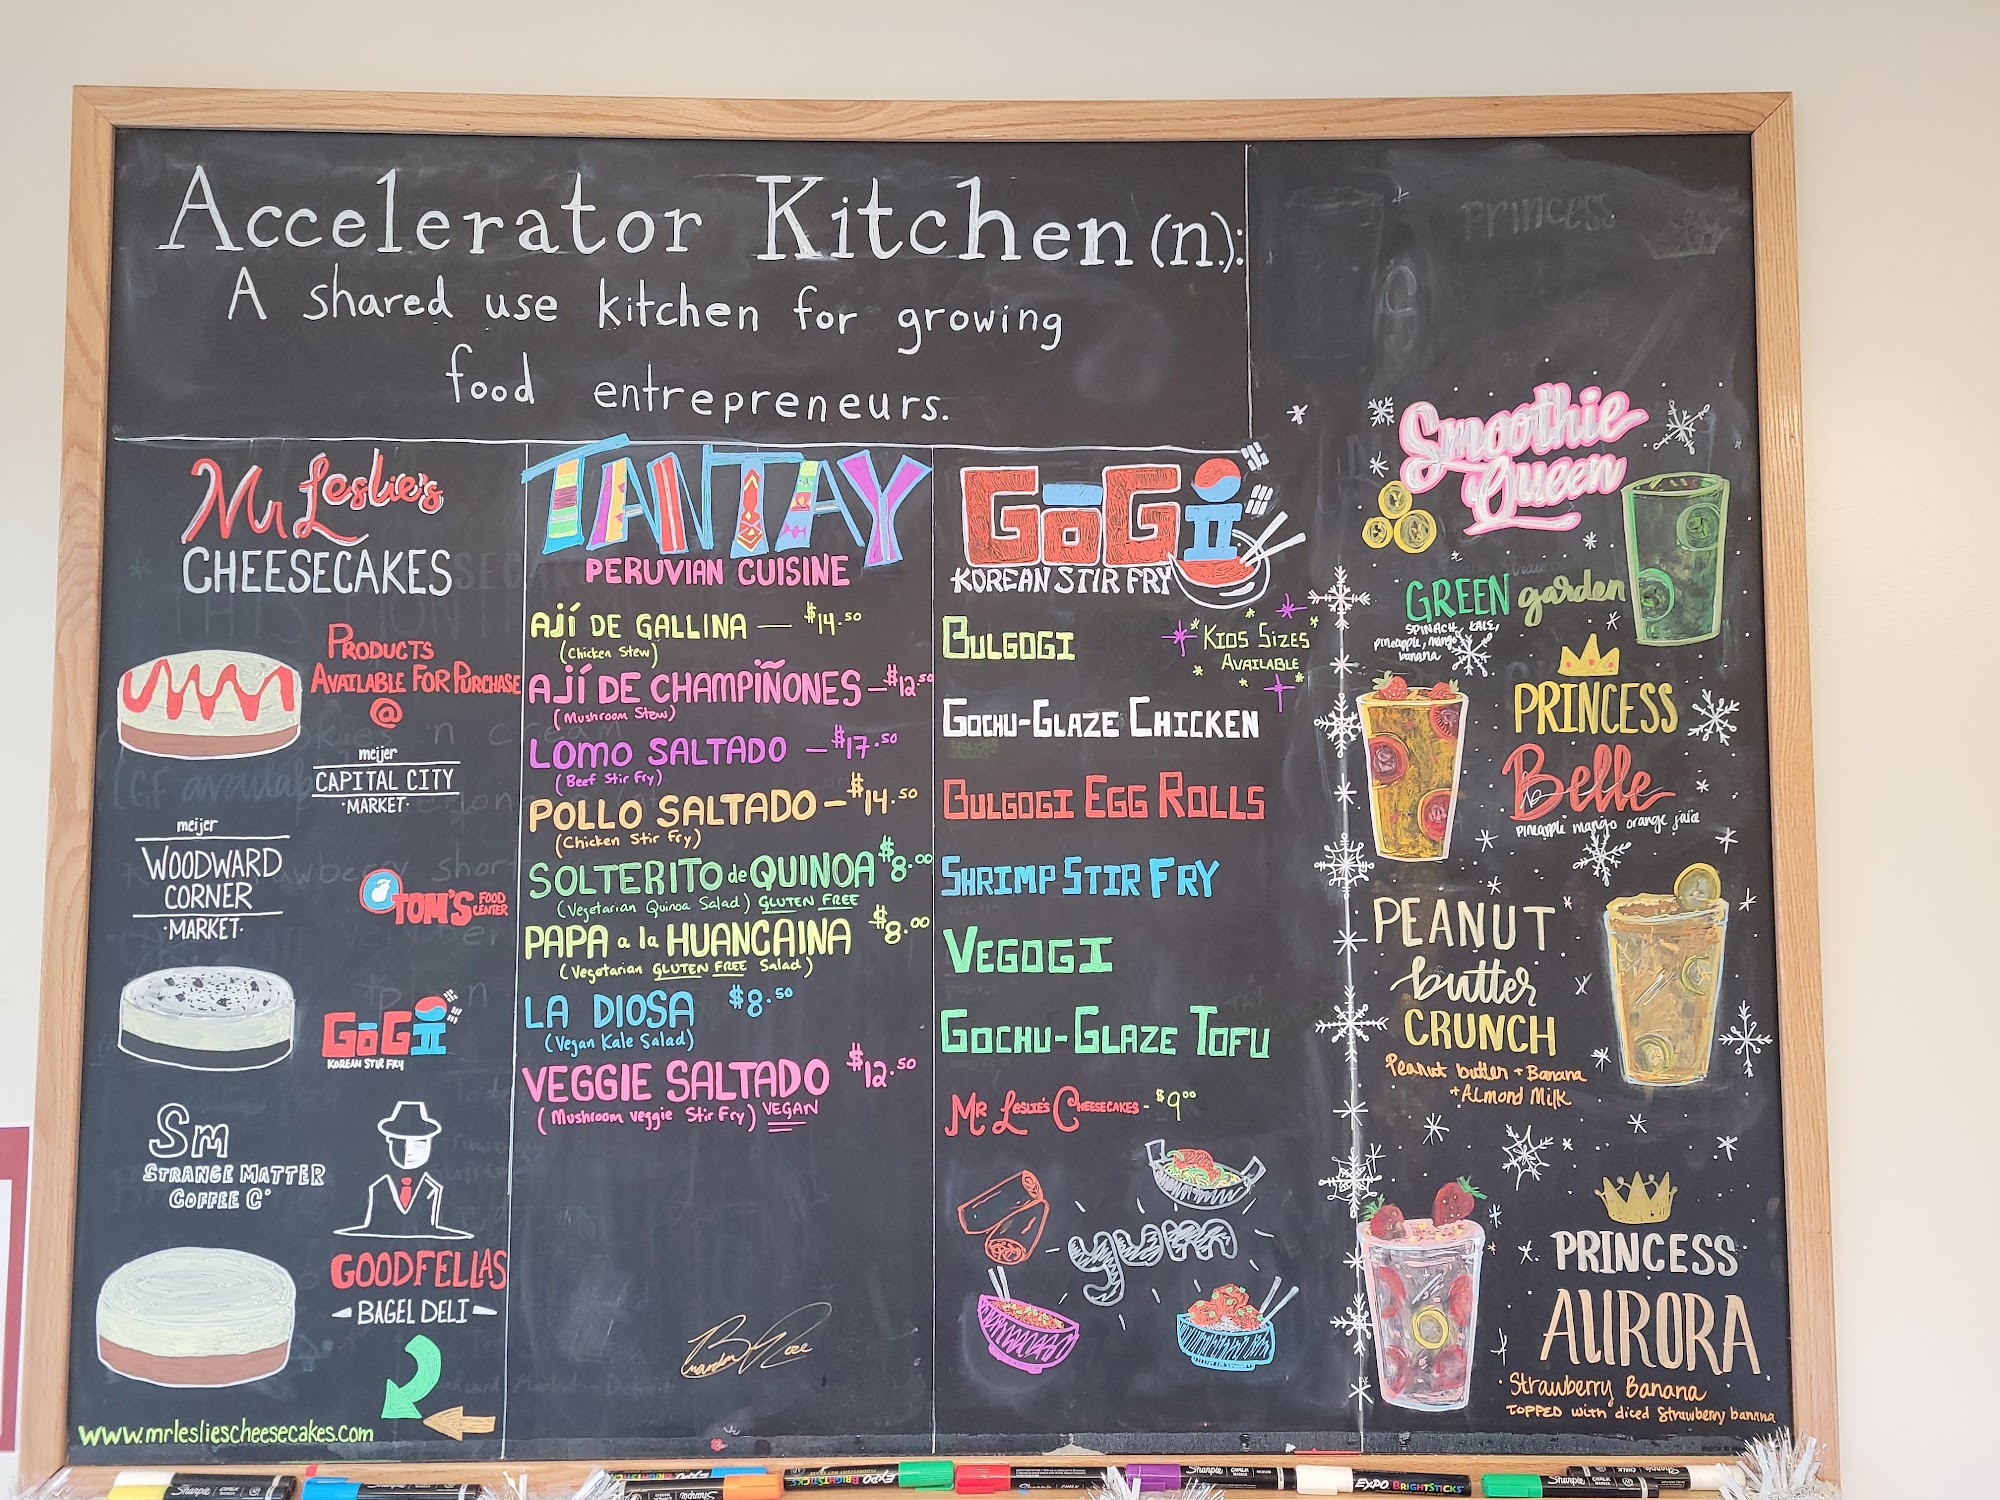 Accelerator Kitchen (n.):
A shared use kitchen for growing
food entrepreneurs.
Mr Leslie's
CHEESECAKES
PRODUCTS
AVAILABLE FOR PURCHASE
@
meijer
CAPITAL CITY
·MARKET·
meijer
WOODWARD
CORNER
·MARKET·
TOM'S FOOD
CENTER
GOGI
KOREAN STIR FRY
Sm
STRANGE MATTER
COFFEE Cº
GOODFELLAS
BAGEL DELI
www.mrlesliescheesecakes.com
TANTAY
PERUVIAN CUISINE
AJÍ DE GALLINA — $14.50
(Chicken Stew)
AJÍ DE CHAMPIÑONES — $12.50
(Mushroom Stew)
LOMO SALTADO — $17.50
(Beef Stir Fry)
POLLO SALTADO — $14.50
(Chicken Stir Fry)
SOLTERITO de QUINOA $8.00
(Vegetarian Quinoa Salad) GLUTEN FREE
PAPA a la HUANCAINA $8.00
(Vegetarian GLUTEN FREE Salad)
LA DIOSA $8.50
(Vegan Kale Salad)
VEGGIE SALTADO $12.50
(Mushroom veggie Stir Fry) VEGAN
GOGI
KOREAN STIR FRY
BULGOGI
KIDS SIZES
AVAILABLE
GOCHU-GLAZE CHICKEN
BULGOGI EGG ROLLS
SHRIMP STIR FRY
VEGOGI
GOCHU-GLAZE TOFU
MR LESLIE'S CHEESECAKES - $9.00
yum
Princess
Smoothie
Queen
GREEN garden
SPINACH, KALE,
pineapple, mango
banana
PRINCESS
Belle
pineapple mango orange juice
PEANUT
butter
CRUNCH
Peanut butter + Banana
+ Almond Milk
PRINCESS
AURORA
Strawberry Banana
TOPPED with diced Strawberry banana
Sharpie CHALK
EXPO BRIGHTSTICKS
Sharpie CHALK
EXPO BRIGHTSTICKS
Sharpie CHALK